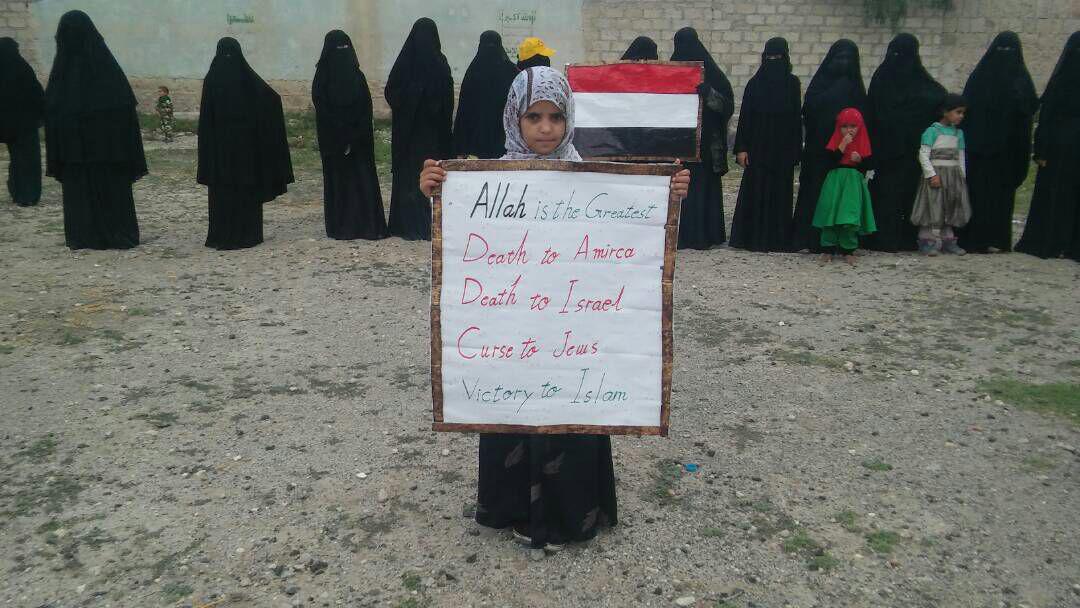 Allah is the Greatest
Death to Amirca
Death to Israel
Curse to Jews
Victory to Islam